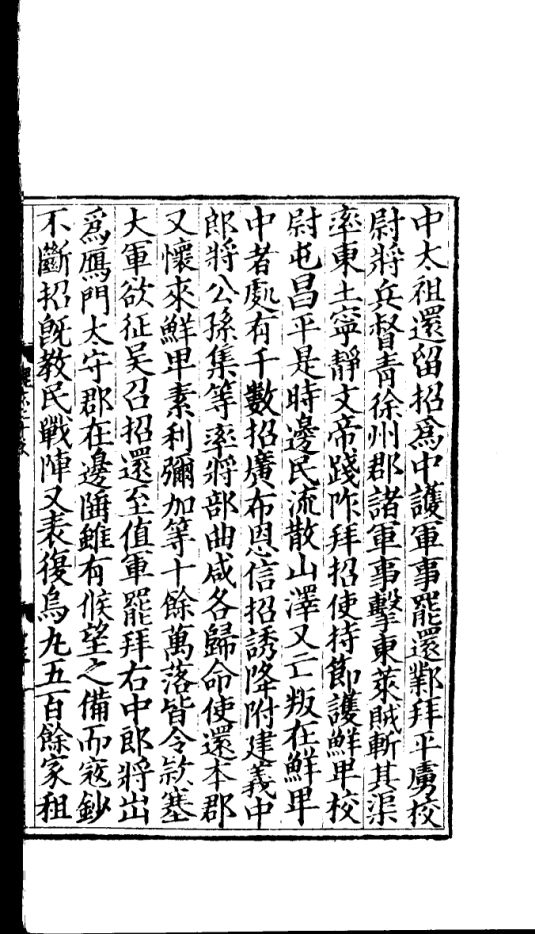 中太祖還留招爲中護軍事罷還鄴拜平虜校
尉將兵督青徐州郡諸軍事擊東萊賊斬其渠
率東土寧靜文帝踐阼拜招使持節護鮮卑校
尉屯昌平是時邊民流散山澤又亡叛在鮮卑
中者處有千數招廣布恩信招誘降附建義中
郎將公孫集等率將部曲咸各歸命使還本郡
又懷來鮮卑素利彌加等十餘萬落皆令款塞
大軍欲征吴召招還至值軍罷拜右中郎將出
爲鴈門太守郡在邊陲雖有候望之備而寇鈔
不斷招既教民戰陣又表復烏丸五百餘家租